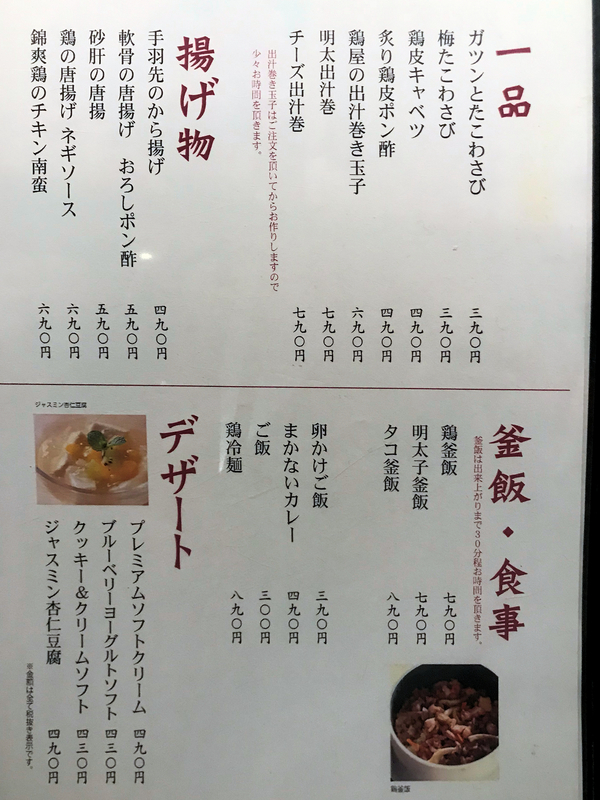 一品
ガツンとたこわさび 三九〇円
梅たこわさび 三九〇円
鶏皮キャベツ 四九〇円
炙り鶏皮ポン酢 四九〇円
鶏屋の出汁巻き玉子 六九〇円
明太出汁巻 七九〇円
チーズ出汁巻 七九〇円
出汁巻き玉子はご注文を頂いてからお作りしますので
少々お時間を頂きます。
揚げ物
手羽先のから揚げ 四九〇円
軟骨の唐揚げ おろしポン酢 五九〇円
砂肝の唐揚 五九〇円
鶏の唐揚げ ネギソース 六九〇円
錦爽鶏のチキン南蛮 六九〇円
釜飯・食事
釜飯は出来上がりまで30分程お時間を頂きます。
鶏釜飯 七九〇円
明太子釜飯 七九〇円
タコ釜飯 八九〇円
卵かけご飯 三九〇円
まかないカレー 四九〇円
ご飯 三〇〇円
鶏冷麺 八九〇円
デザート
プレミアムソフトクリーム 四九〇円
ブルーベリーヨーグルトソフト 四三〇円
クッキー&クリームソフト 四三〇円
ジャスミン杏仁豆腐 四九〇円
ジャスミン杏仁豆腐
※金額は全て税抜き表示です。